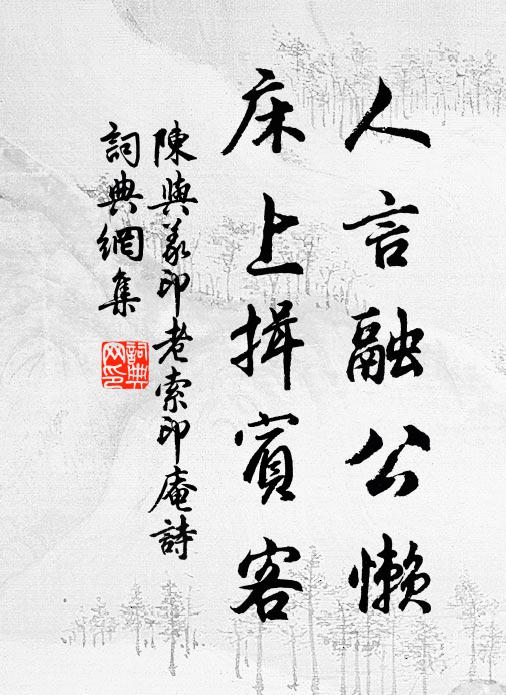 人言融公懶
床上揖賓客
陳與義印老索印庵詩
詞典網集
詞典网印